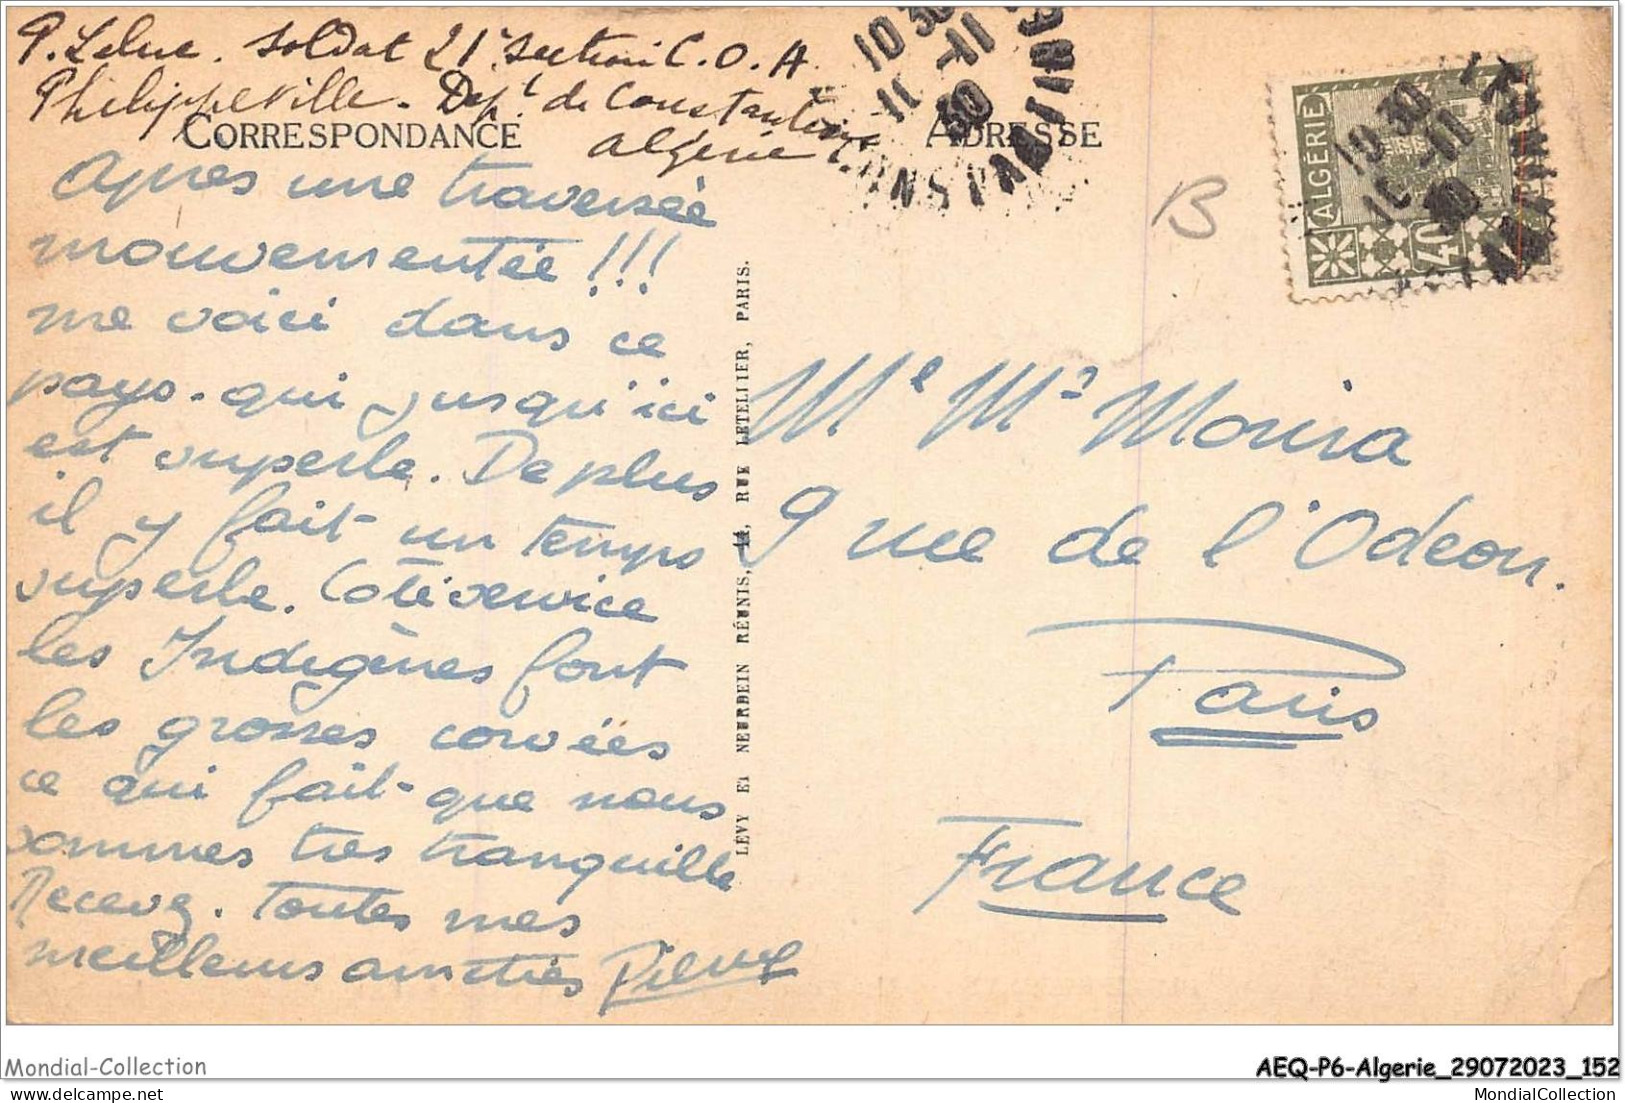 P. Leluc. Soldat 21e Section C.O.A
Philippeville. Dépt de Constantine
Algérie
CORRESPONDANCE
ADRESSE
Après une traversée
mouvementée !!!
me voici dans ce
pays. qui jusqu'ici
est superbe. De plus
il y fait un temps
superbe. Coté service
les Indigènes font
les grosses corvées
ce qui fait que nous
sommes tres tranquille
Recevez. toutes mes
meilleurs amitiés Pierre
LEVY ET NEURDEIN RÉUNIS, 44, RUE LETELLIER, PARIS.
10 30
11 -11
30
ALGERIE
40
10 30
11 -11
30
B
Me Mr Moura
9 rue de l'Odeon.
Paris
France
Mondial-Collection
AEQ-P6-Algerie_29072023_152
delcampe.net
MondialCollection